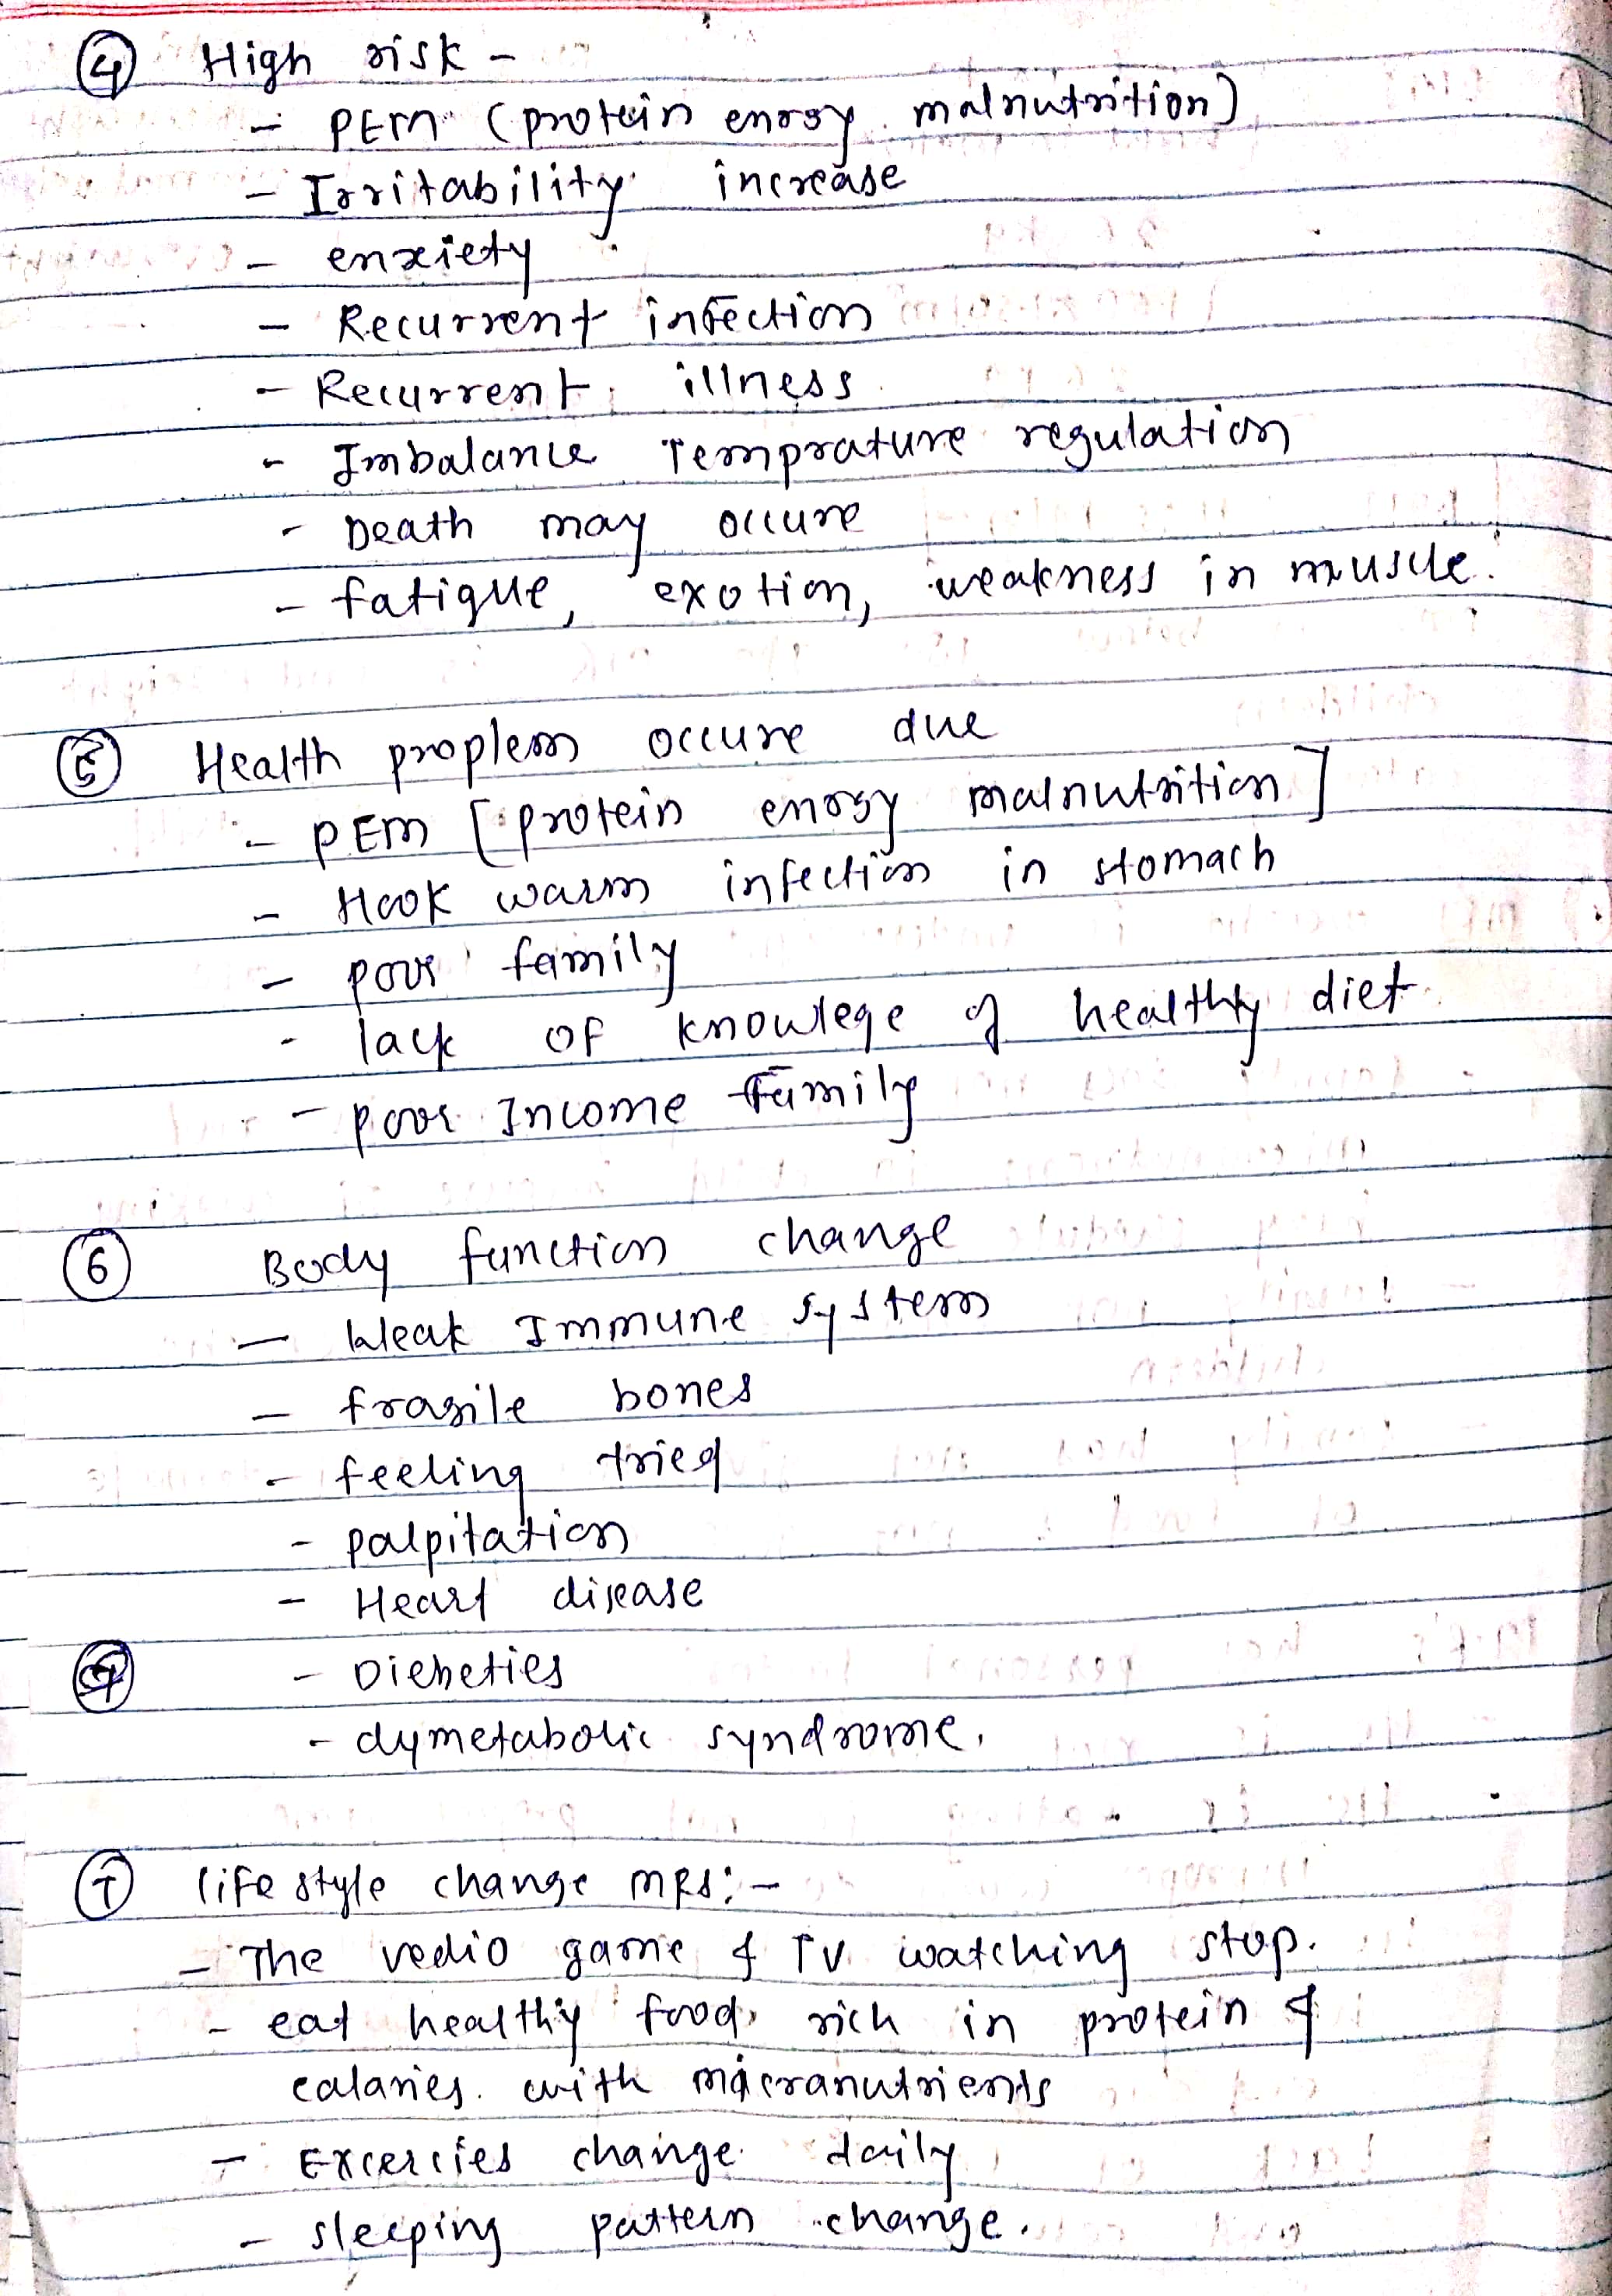 ④ High risk -
- PEM (protein enrgy malnutrition)
- Irritability increase
- enxiety
- Recurrent infection
- Recurrent illness
- Imbalance Temprature regulation
- Death may occure
- fatigue, exotion, weakness in muscle.
⑤ Health proplem occure due
- PEM [protein enrgy malnutrition]
- Hook warm infection in stomach
- poor family
- lack of knowlege of healthy diet
- poor Income family
⑥ Body function change
- Weak Immune system
- fragile bones
- feeling tried
- palpitation
- Heart disease
- Diebeties
- dymetabolic syndrome.
⑦ life style change MRS:-
- The vedio game & TV watching stop.
- eat healthy food, rich in protein &
calaries. with macranutrients
- Excercies change daily
- sleeping pattern change.